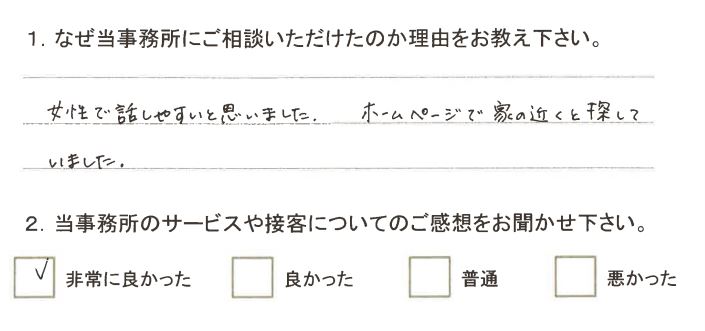 1. なぜ当事務所にご相談いただけたのか理由をお教え下さい。
女性で話しやすいと思いました. ホームページで家の近くと探して
いました.
2. 当事務所のサービスや接客についてのご感想をお聞かせ下さい。
✓ 非常に良かった 良かった 普通 悪かった